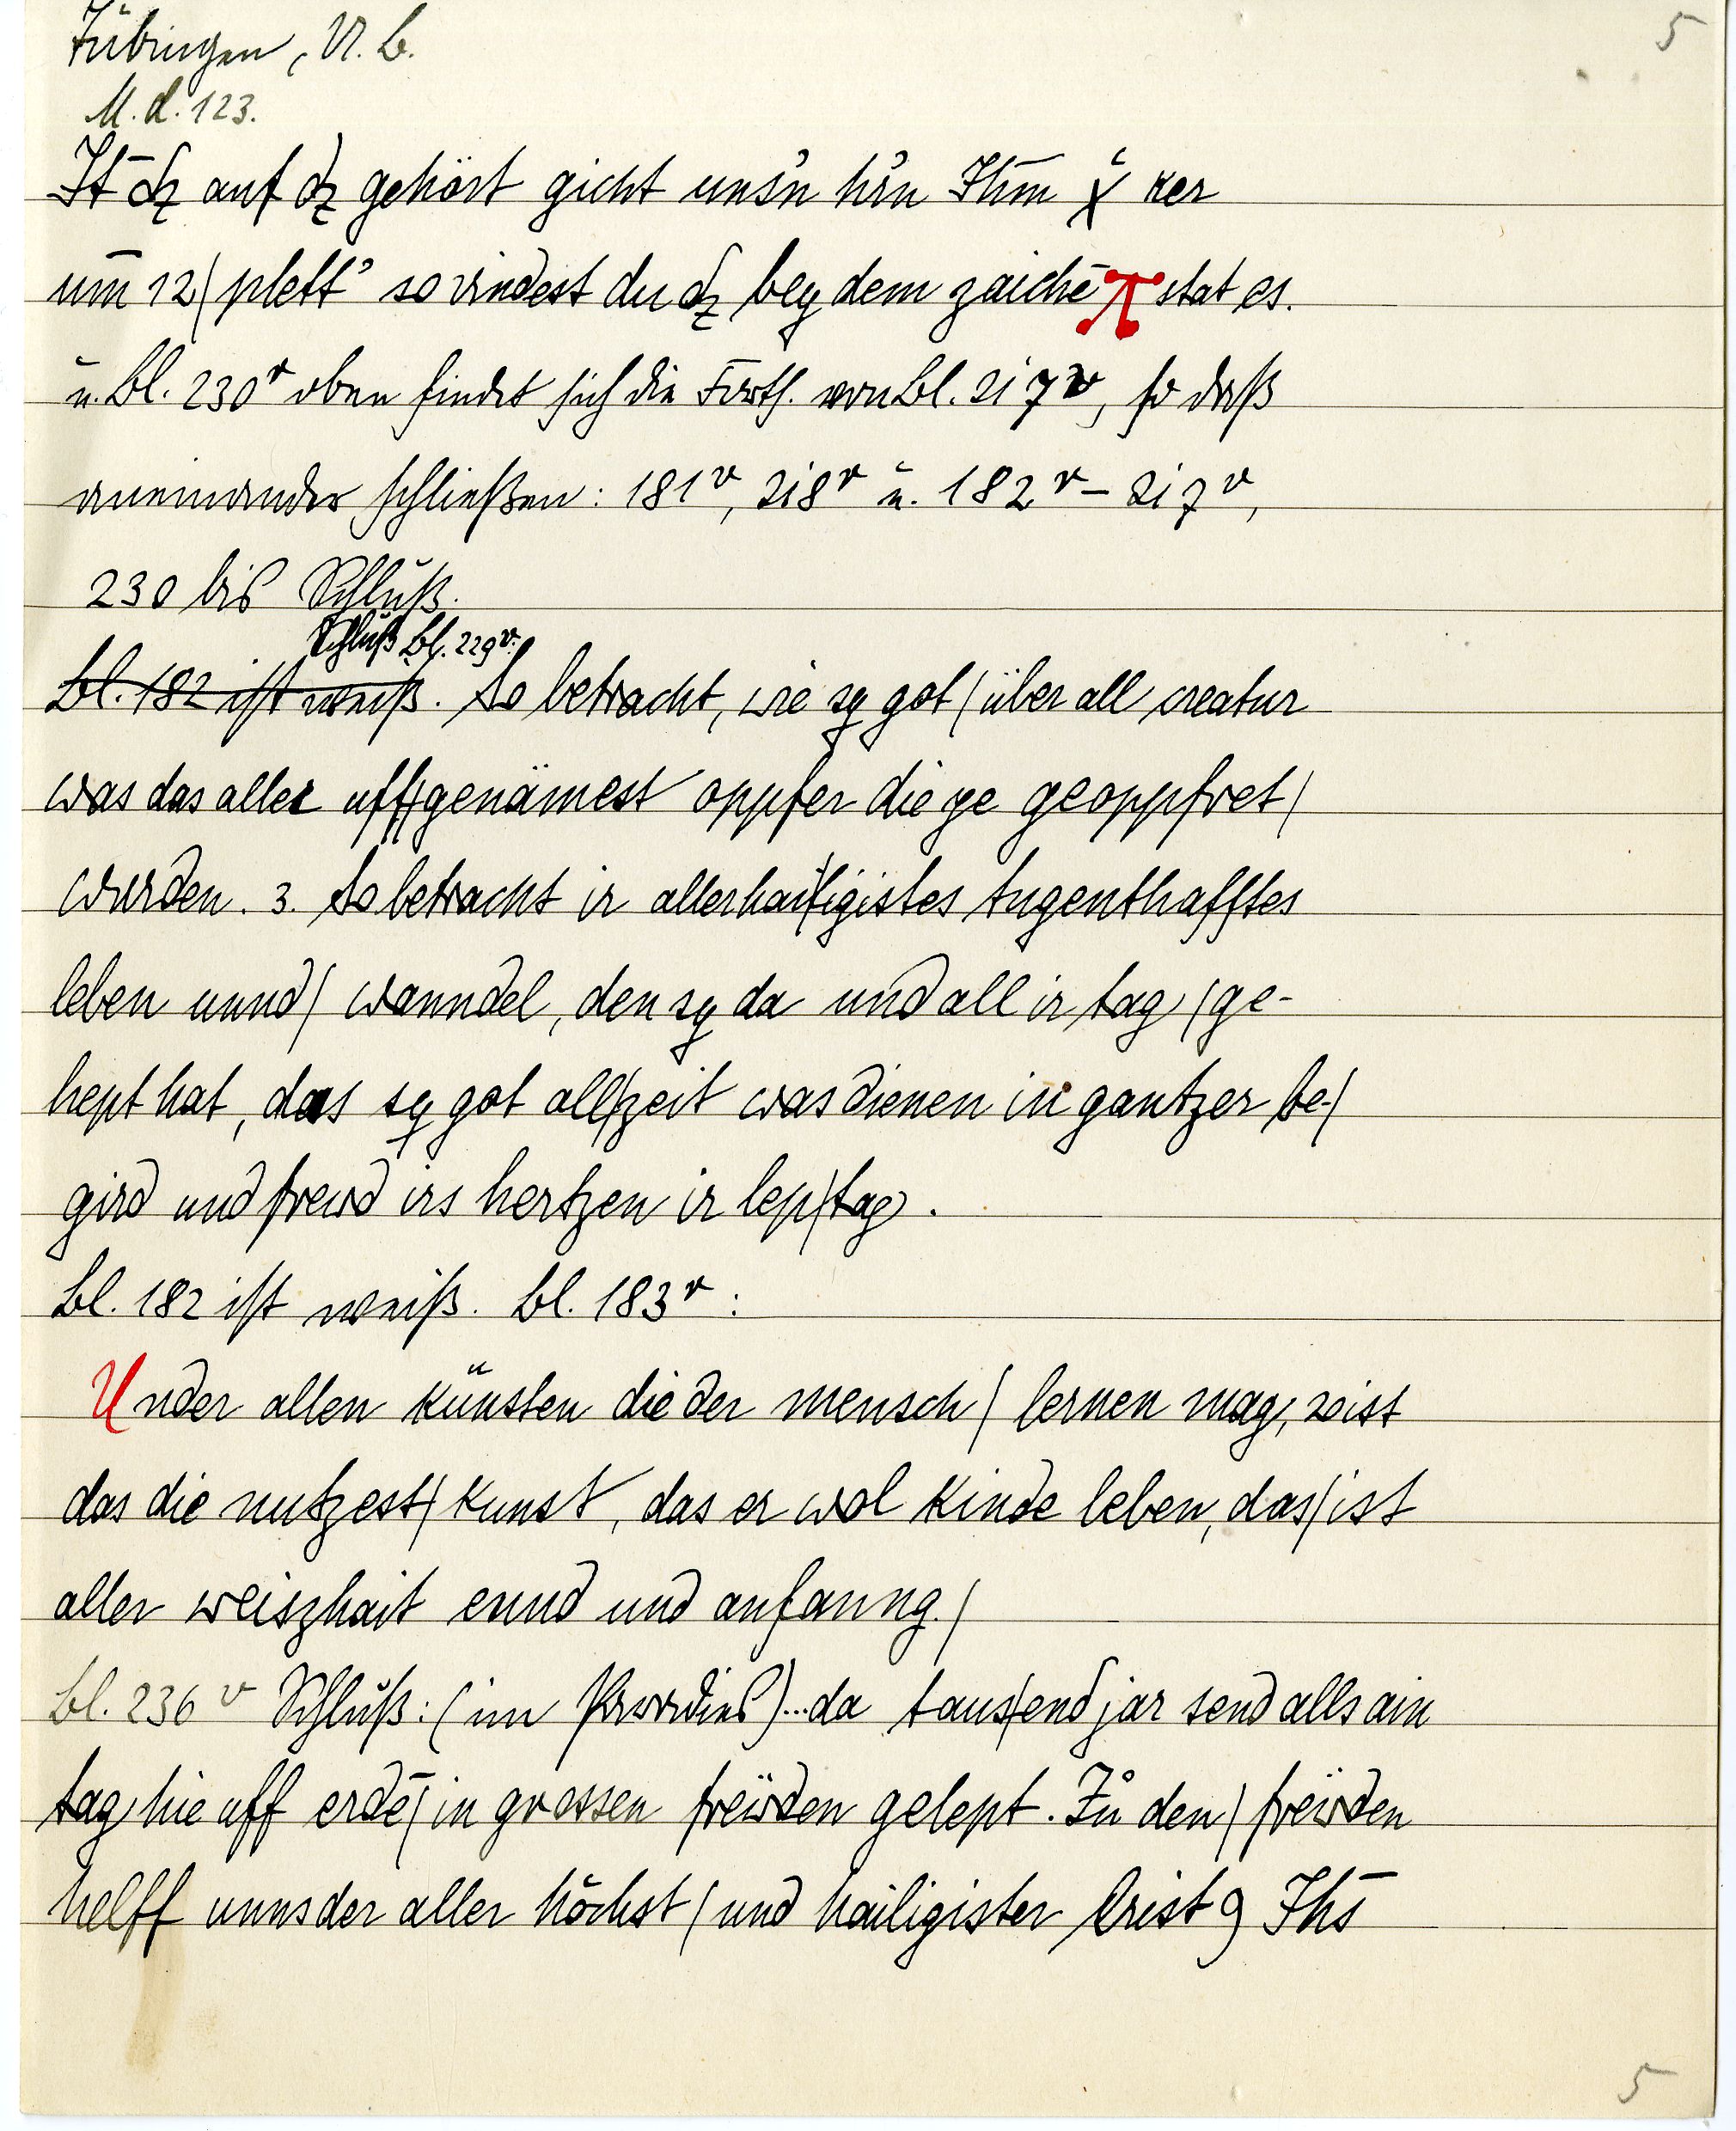 Tübingen, U. B. 5
M. d. 123.
It dz auf dz gehört gicht uns'n h'rn Ihm̄ x̊ ker
um̄ 12 | plett' so vindest du dz bey dem zaichē π stat es.
u. Bl. 230r oben findet sich die Forts. von Bl. 217v, so daß
aneinander schließen: 181v, 218r u. 182r – 217v,
230 bis Schluß.
Schluß Bl. 229v:
Bl. 182 ist weiß. So betracht, wie sy got | über all creatur
was das aller uff|genämest oppfer die ye geoppfret |
wurden. 3. So betracht ir allerhai|ligistes tugenthafftes
leben unnd | wanndel, den sy da und all ir tag | ge-
hept hat, das sy got all|zeit was dienen in gantzer be- |
gird und frewd irs hertzen ir lep|tag.
Bl. 182 ist weiß. Bl. 183r:
Under allen künsten die der mensch | lernen mag, so ist
das die nutzest | kunst, das er wol kinde leben, das | ist
aller weiszhait ennd und anfanng. |
Bl. 236v Schluß: (im Paradies)... da taus|end jar send alls ain
tag hie uff erdē | in grossen frëwden gelept. Zů den | frëwden
helff unns der aller höchst | und hailigister Crist9 Ihs̄
5